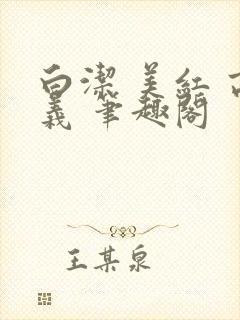 白潔 美紅 高
義 筆趣閣
王某泉